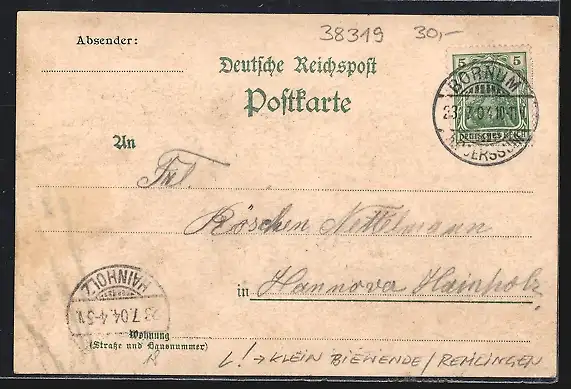 38319 30,-
Absender:
Deutsche Reichspost
Postkarte
5 5
BORNUM
23.7.04.10-11
DEUTSCHES REICH
An
Frl.
Röschen Nettelmann
in Hannover Hainholz
HAINHOLZ
23.7.04.4-5N
Wohnung
(Straße und Hausnummer)
L! → KLEIN BIEWENDE / REMLINGEN